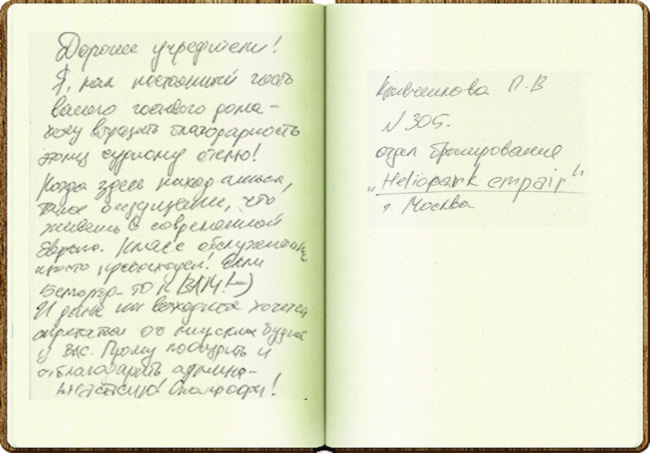 Дорогие учредители!
Я, как постоянный гость
вашего гостевого дома –
хочу выразить благодарность
этому чудному отелю!
Когда здесь находишься,
такое ощущение, что
живешь в современной
Европе. Класс обслуживания
просто превосходен! Если
комфорт – то к ВАМ! –)
И даже на выходные хочется
от будней
у вас. Прошу поощрить и
отблагодарить админ-
Анастасию!
П.В
N 305.
отдел бронирования
„Heliopark empair"
г. Москва